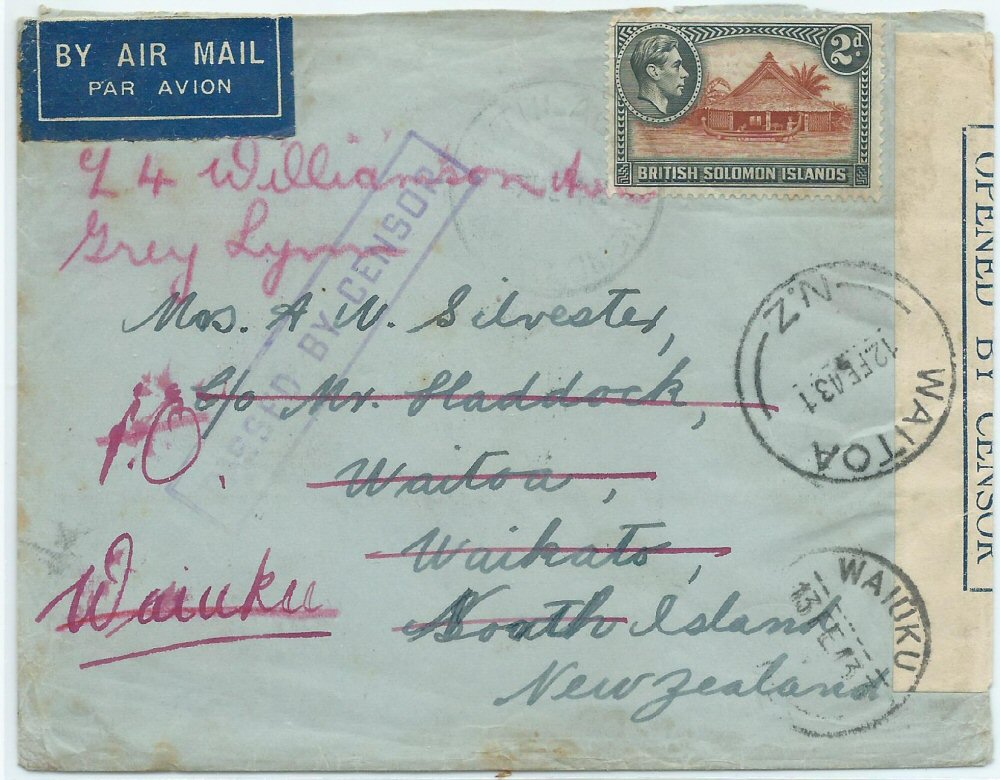 BY AIR MAIL
PAR AVION
2d.
BRITISH SOLOMON ISLANDS
4 Williamson Ave
Grey Lynn
PASSED BY CENSOR
Mrs. A W. Silvester,
c/o Mr. Haddock,
P.O.
Waitoa,
Waikato,
Waiuku
North Island
New Zealand
WAITOA
N.Z.
12 FE 43 1
WAIUKU
13 FE 43
OPENED BY CENSOR